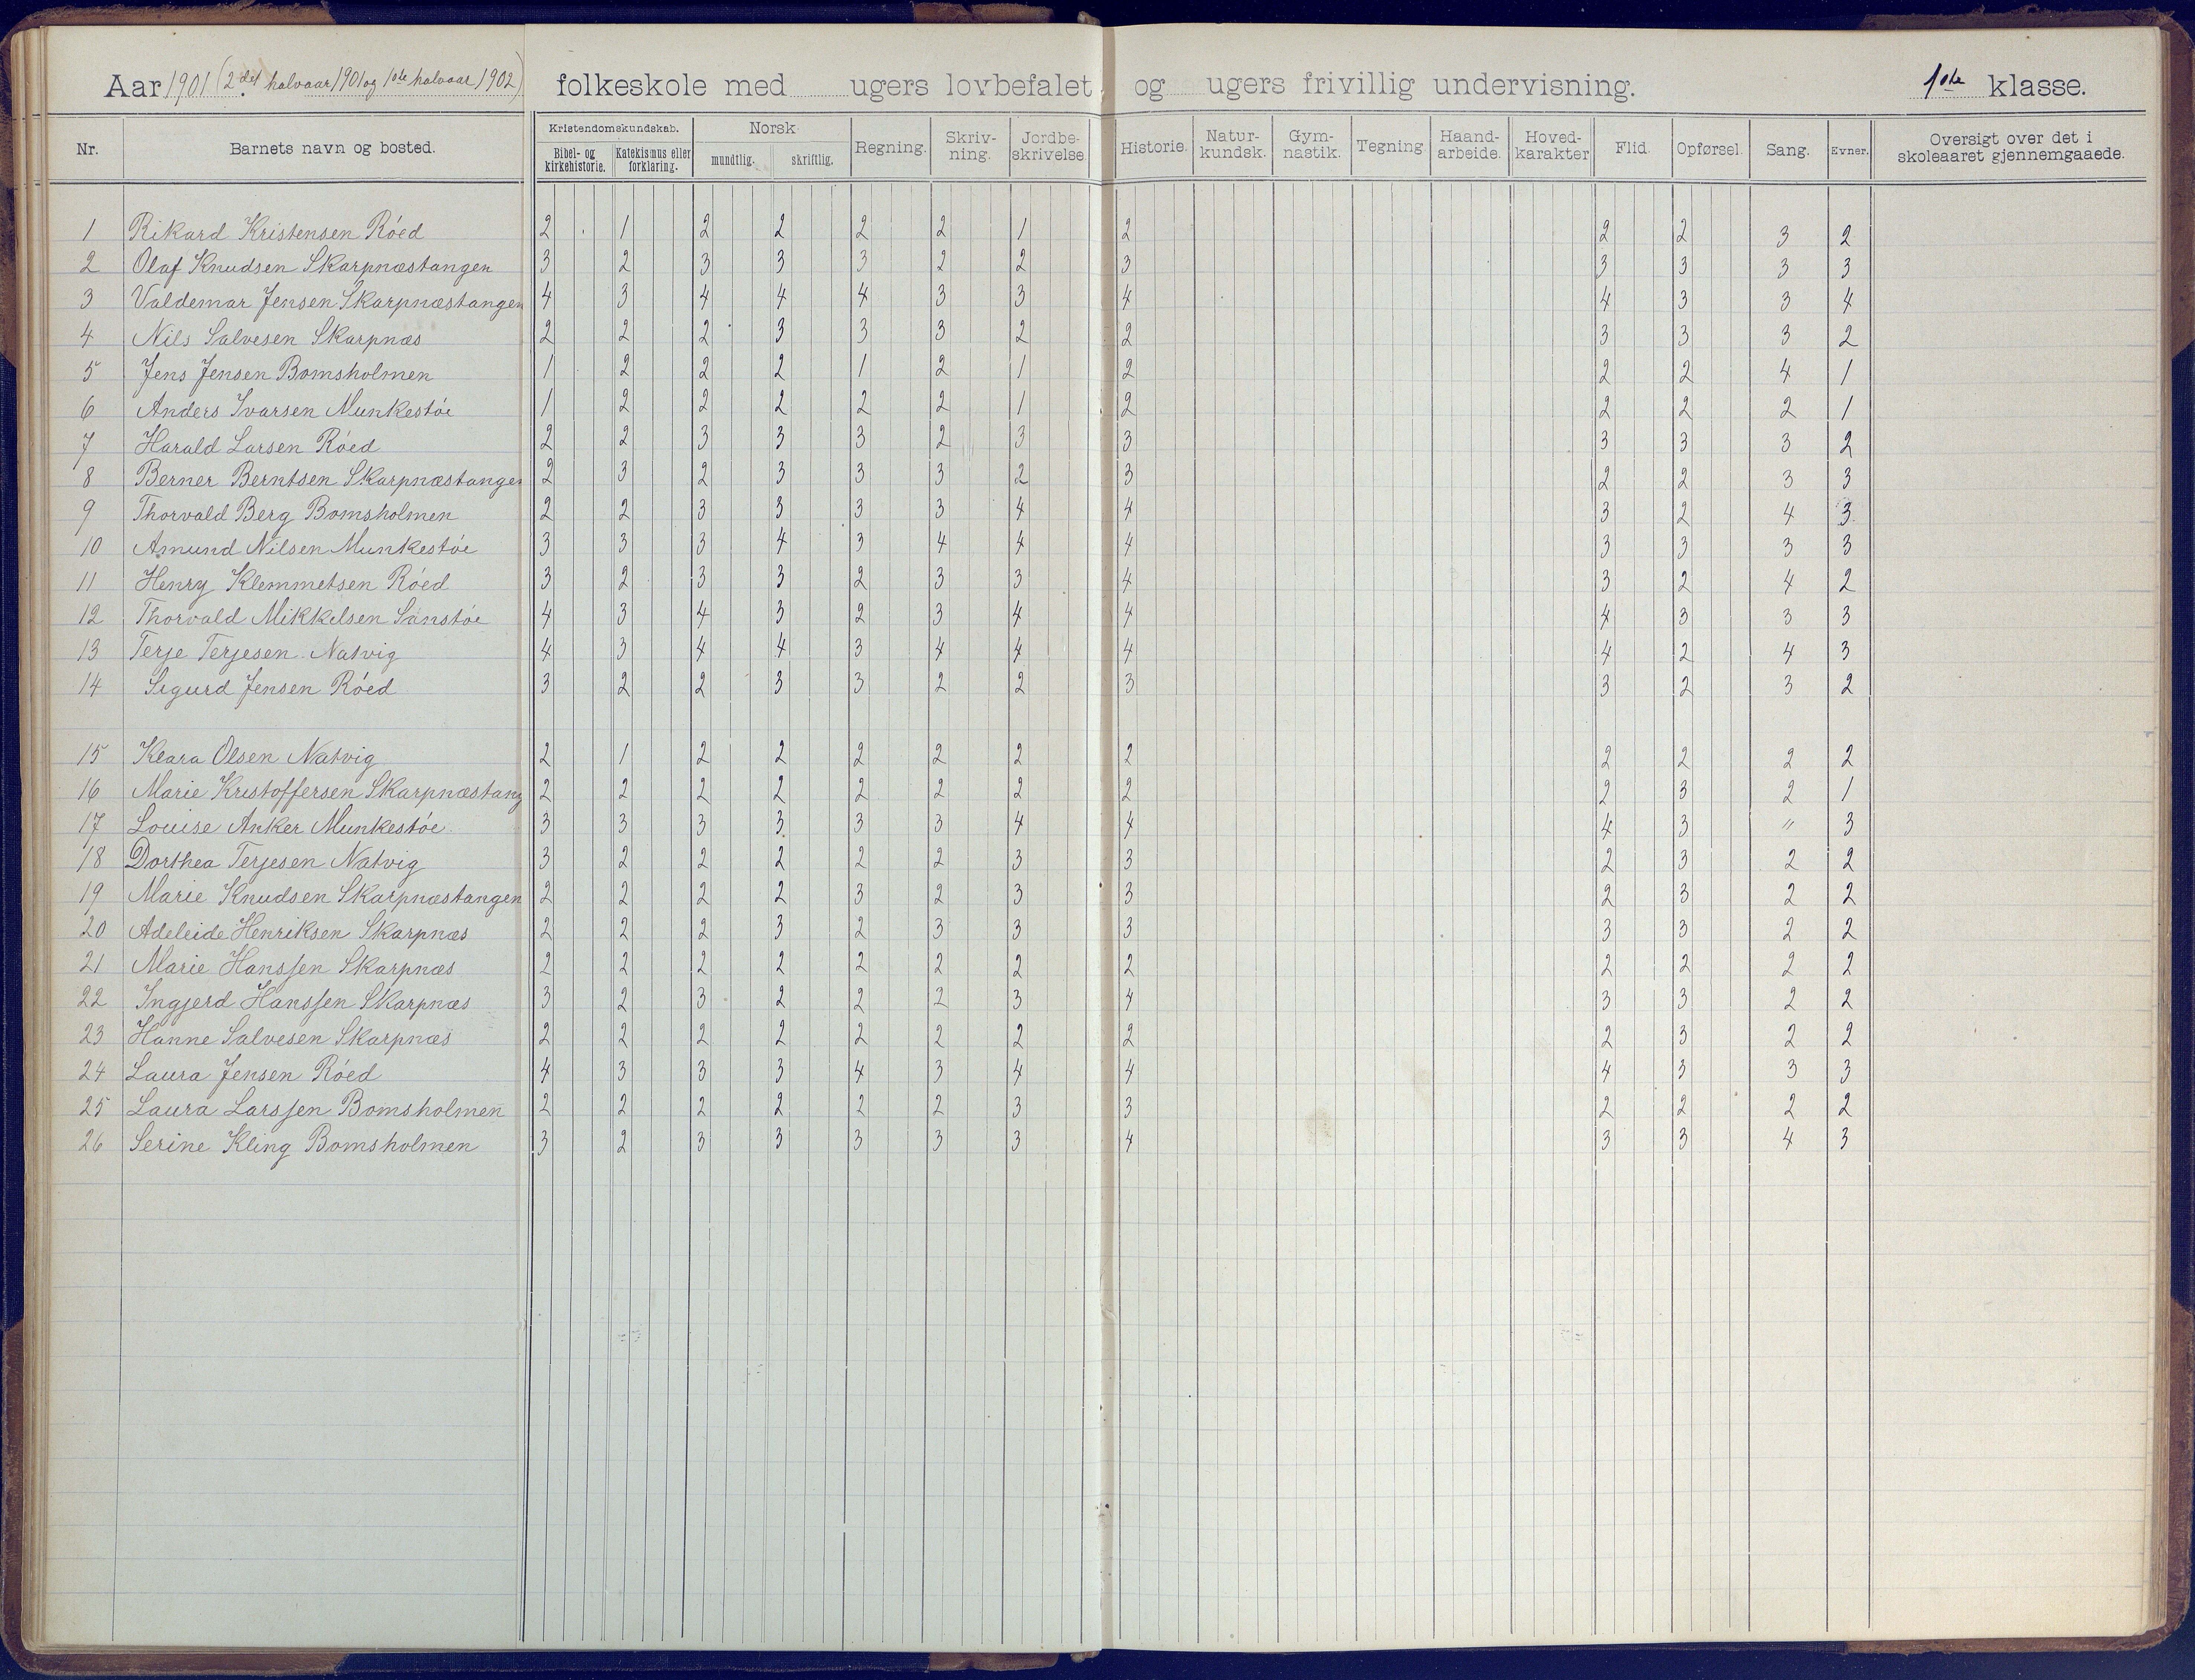 Aar 1901 (2det halvaar 1901 og 1ste halvaar 1902) folkeskole med ugers lovbefalet og ugers frivillig undervisning. 1ste klasse.
Nr. Barnets navn og bosted. Kristendomskundskab. Bibel- og kirkehistorie. Katekismus eller forklaring. Norsk mundtlig. skriftlig. Regning. Skriv-ning. Jordbe-skrivelse. Historie. Natur-kundsk. Gym-nastik. Tegning Haand-arbeide. Hoved-karakter Flid. Opførsel. Sang. Evner. Oversigt over det i skoleaaret gjennemgaaede.
1 Rikard Kristensen Róed 2 1 2 2 2 2 1 2 2 2 3 2
2 Olaf Knudsen Skarpnæstangen 3 2 3 3 3 2 2 3 3 3 3 3
3 Valdemar Jensen Skarpnæstangen 4 3 4 4 4 3 3 4 4 3 3 4
4 Nils Salvesen Skarpnæs 2 2 2 3 3 3 2 2 3 3 3 2
5 Jens Jensen Bomsholmen 1 2 2 2 1 2 1 2 2 2 4 1
6 Anders Ivarsen Munkestóe 1 2 2 2 2 2 1 2 2 2 2 1
7 Harald Larsen Róed 2 2 3 3 3 2 3 3 3 3 3 2
8 Berner Berntsen Skarpnæstangen 2 3 2 3 3 3 2 3 2 2 3 3
9 Thorvald Berg Bomsholmen 2 2 3 3 3 3 4 4 3 2 4 3
10 Amund Nilsen Munkestóe 3 3 3 4 3 4 4 4 3 3 3 3
11 Henry Klemmetsen Róed 3 2 3 3 2 3 3 4 3 2 4 2
12 Thorvald Mikkelsen Sanstóe 4 3 4 3 2 3 4 4 4 3 3 3
13 Terje Terjesen Natvig 4 3 4 4 3 4 4 4 4 2 4 3
14 Sigurd Jensen Róed 3 2 2 3 3 2 2 3 3 2 3 2
15 Klara Olsen Natvig 2 1 2 2 2 2 2 2 2 2 2 2
16 Marie Kristoffersen Skarpnæstang 2 2 2 2 2 2 2 2 2 3 2 1
17 Louise Anker Munkestóe 3 3 3 3 3 3 4 4 4 3 " 3
18 Dorthea Terjesen Natvig 3 2 2 2 2 2 3 3 2 3 2 2
19 Marie Knudsen Skarpnæstangen 2 2 2 2 3 2 3 3 2 3 2 2
20 Adeleide Henriksen Skarpnæs 2 2 2 3 2 3 3 3 3 3 2 2
21 Marie Hansſen Skarpnæs 2 2 2 2 2 2 2 2 2 2 2 2
22 Ingjerd Hansſen Skarpnæs 3 2 3 2 2 2 3 4 3 3 2 2
23 Hanne Salvesen Skarpnæs 2 2 2 2 2 2 2 2 2 3 2 2
24 Laura Jensen Róed 4 3 3 3 4 3 4 4 4 3 3 3
25 Laura Larsſen Bomsholmen 2 2 2 2 2 2 3 3 2 2 2 2
26 Serine Kling Bomsholmen 3 2 3 3 3 3 3 4 3 3 4 3